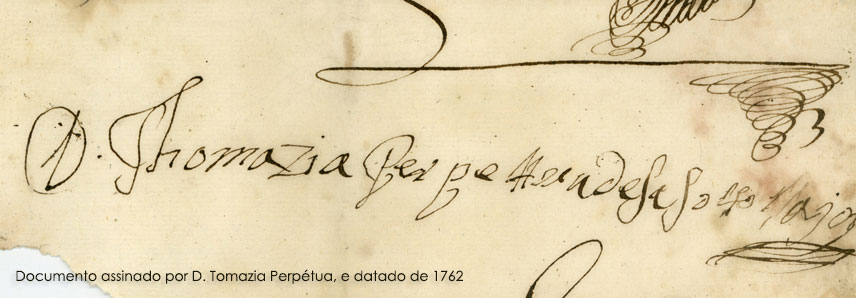 D. Thomazia Perpettua de Sa Sotto Major
Documento assinado por D. Tomazia Perpétua, e datado de 1762